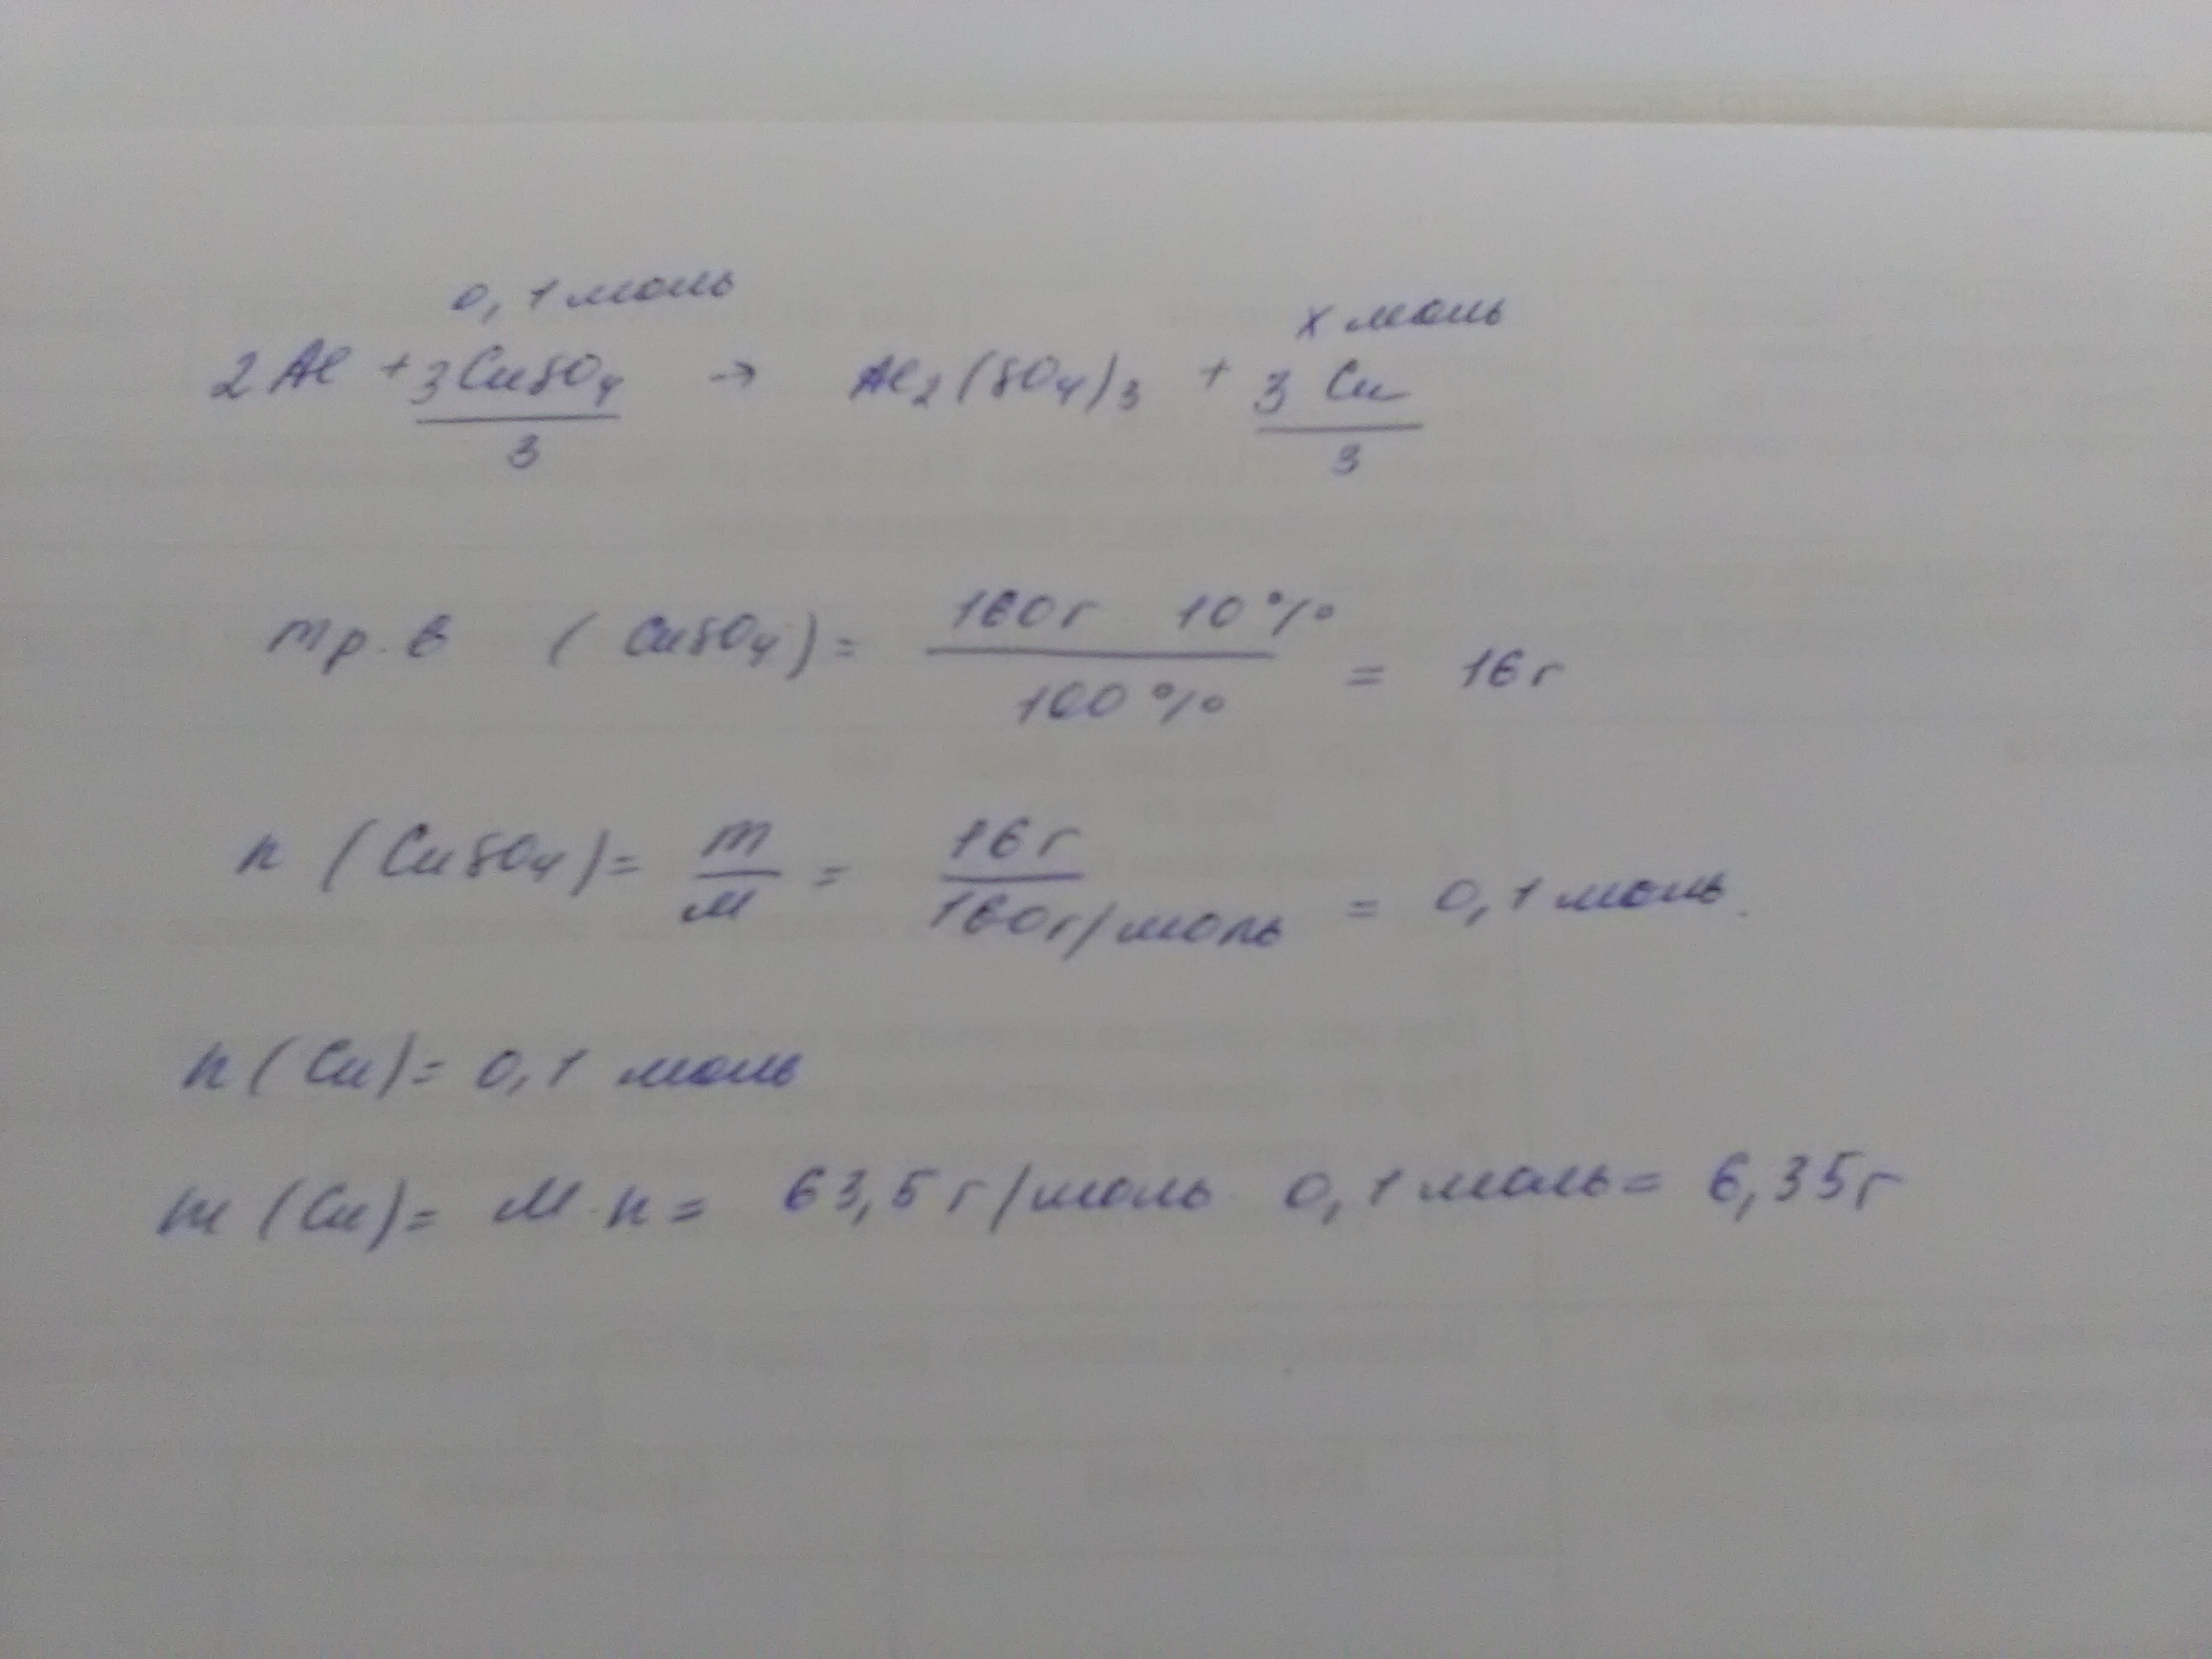 0,1 моль
x моль
2Al + 3CuSO4 → Al2(SO4)3 + 3 Cu
3
3
mр.в (CuSO4) = 160г · 10% / 100% = 16г
n (CuSO4) = m / M = 16г / 160г/моль = 0,1 моль.
n (Cu) = 0,1 моль
m (Cu) = M · n = 63,5 г/моль · 0,1 моль = 6,35г